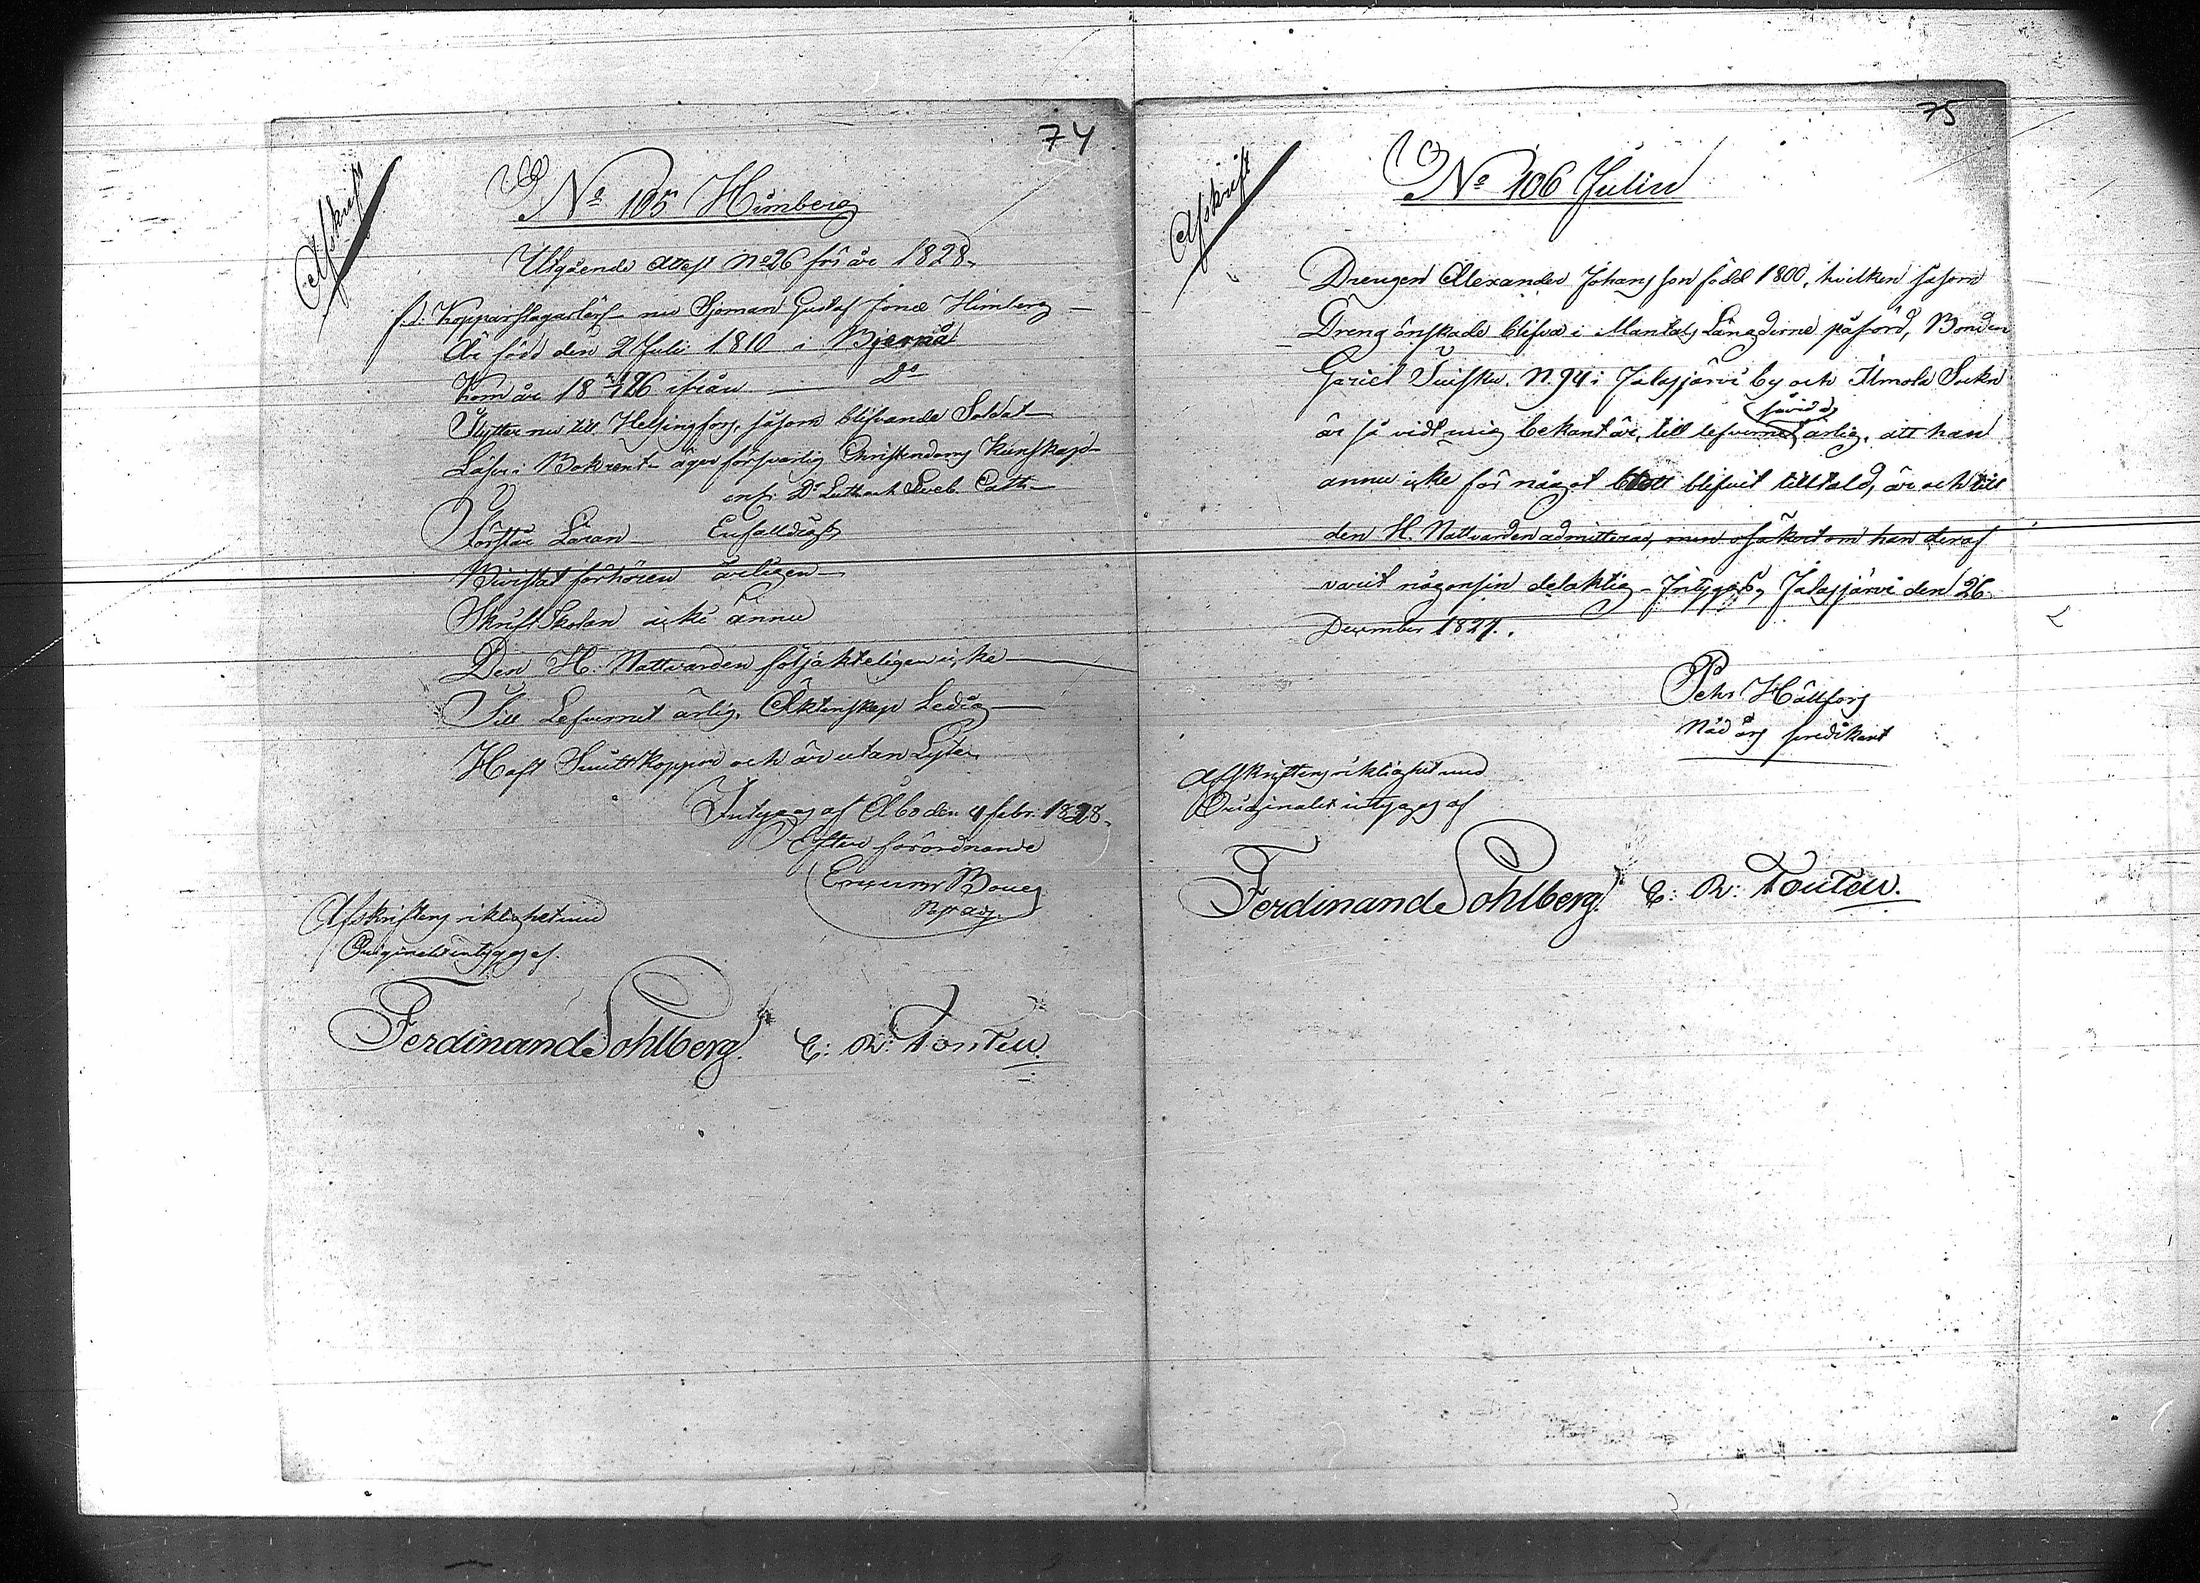 74
Afskrift
No 105 Himberg
Utgående Attest No 26 för år 1828.
f.d. Kopparslagarlärl. nu Sjöman Gustaf Himberg
Är född den 2 Juli 1810 i Bjerno
Kom år 18 26 ifrån Do
Flyttar nu till Helsingfors, såsom blifvande Soldat
Läser i Bokrent äger försvarlig Christendoms Kunskap
Luth och Sveb. Cath.
Förstår Läran Enfalldigt
Bivistat förhören årligen
Skrift Skolan icke ännu
Den H. Nattvarden följakteligen icke
Till Lefvernet ärlig, Äktenskap Ledig
Haft Smittkoppor och är utan Lyte
Intygas af Åbo den 4 febr. 1828.
Efter förordnande
Afskriftens riktighet med
Originalet intygges af.
Ferdinand Sohlberg. C: R:
75
Afskrift
No 106 Julin
Drengen Alexander Johansson född 1800, hvilken såsom
Dreng önskade blifva i Mantals Längderne påförd, Bonden
N. 94 i Jalasjärvi by och Ilmola Sockn
är så vidt mig bekant är, till lefvernet ärlig, att han
annu icke för något brott blifvit tilltald, är och till
den H. Nattvarden admitterad, men osäkert om han deraf
varit någonsin delaktig – Intygas, Jalasjärvi den 26
December 1827.
Pehr Hällfors
Nådårs predikant
Afskriftens riktighet med
Originalet intygges af
Ferdinand Sohlberg. C: R: